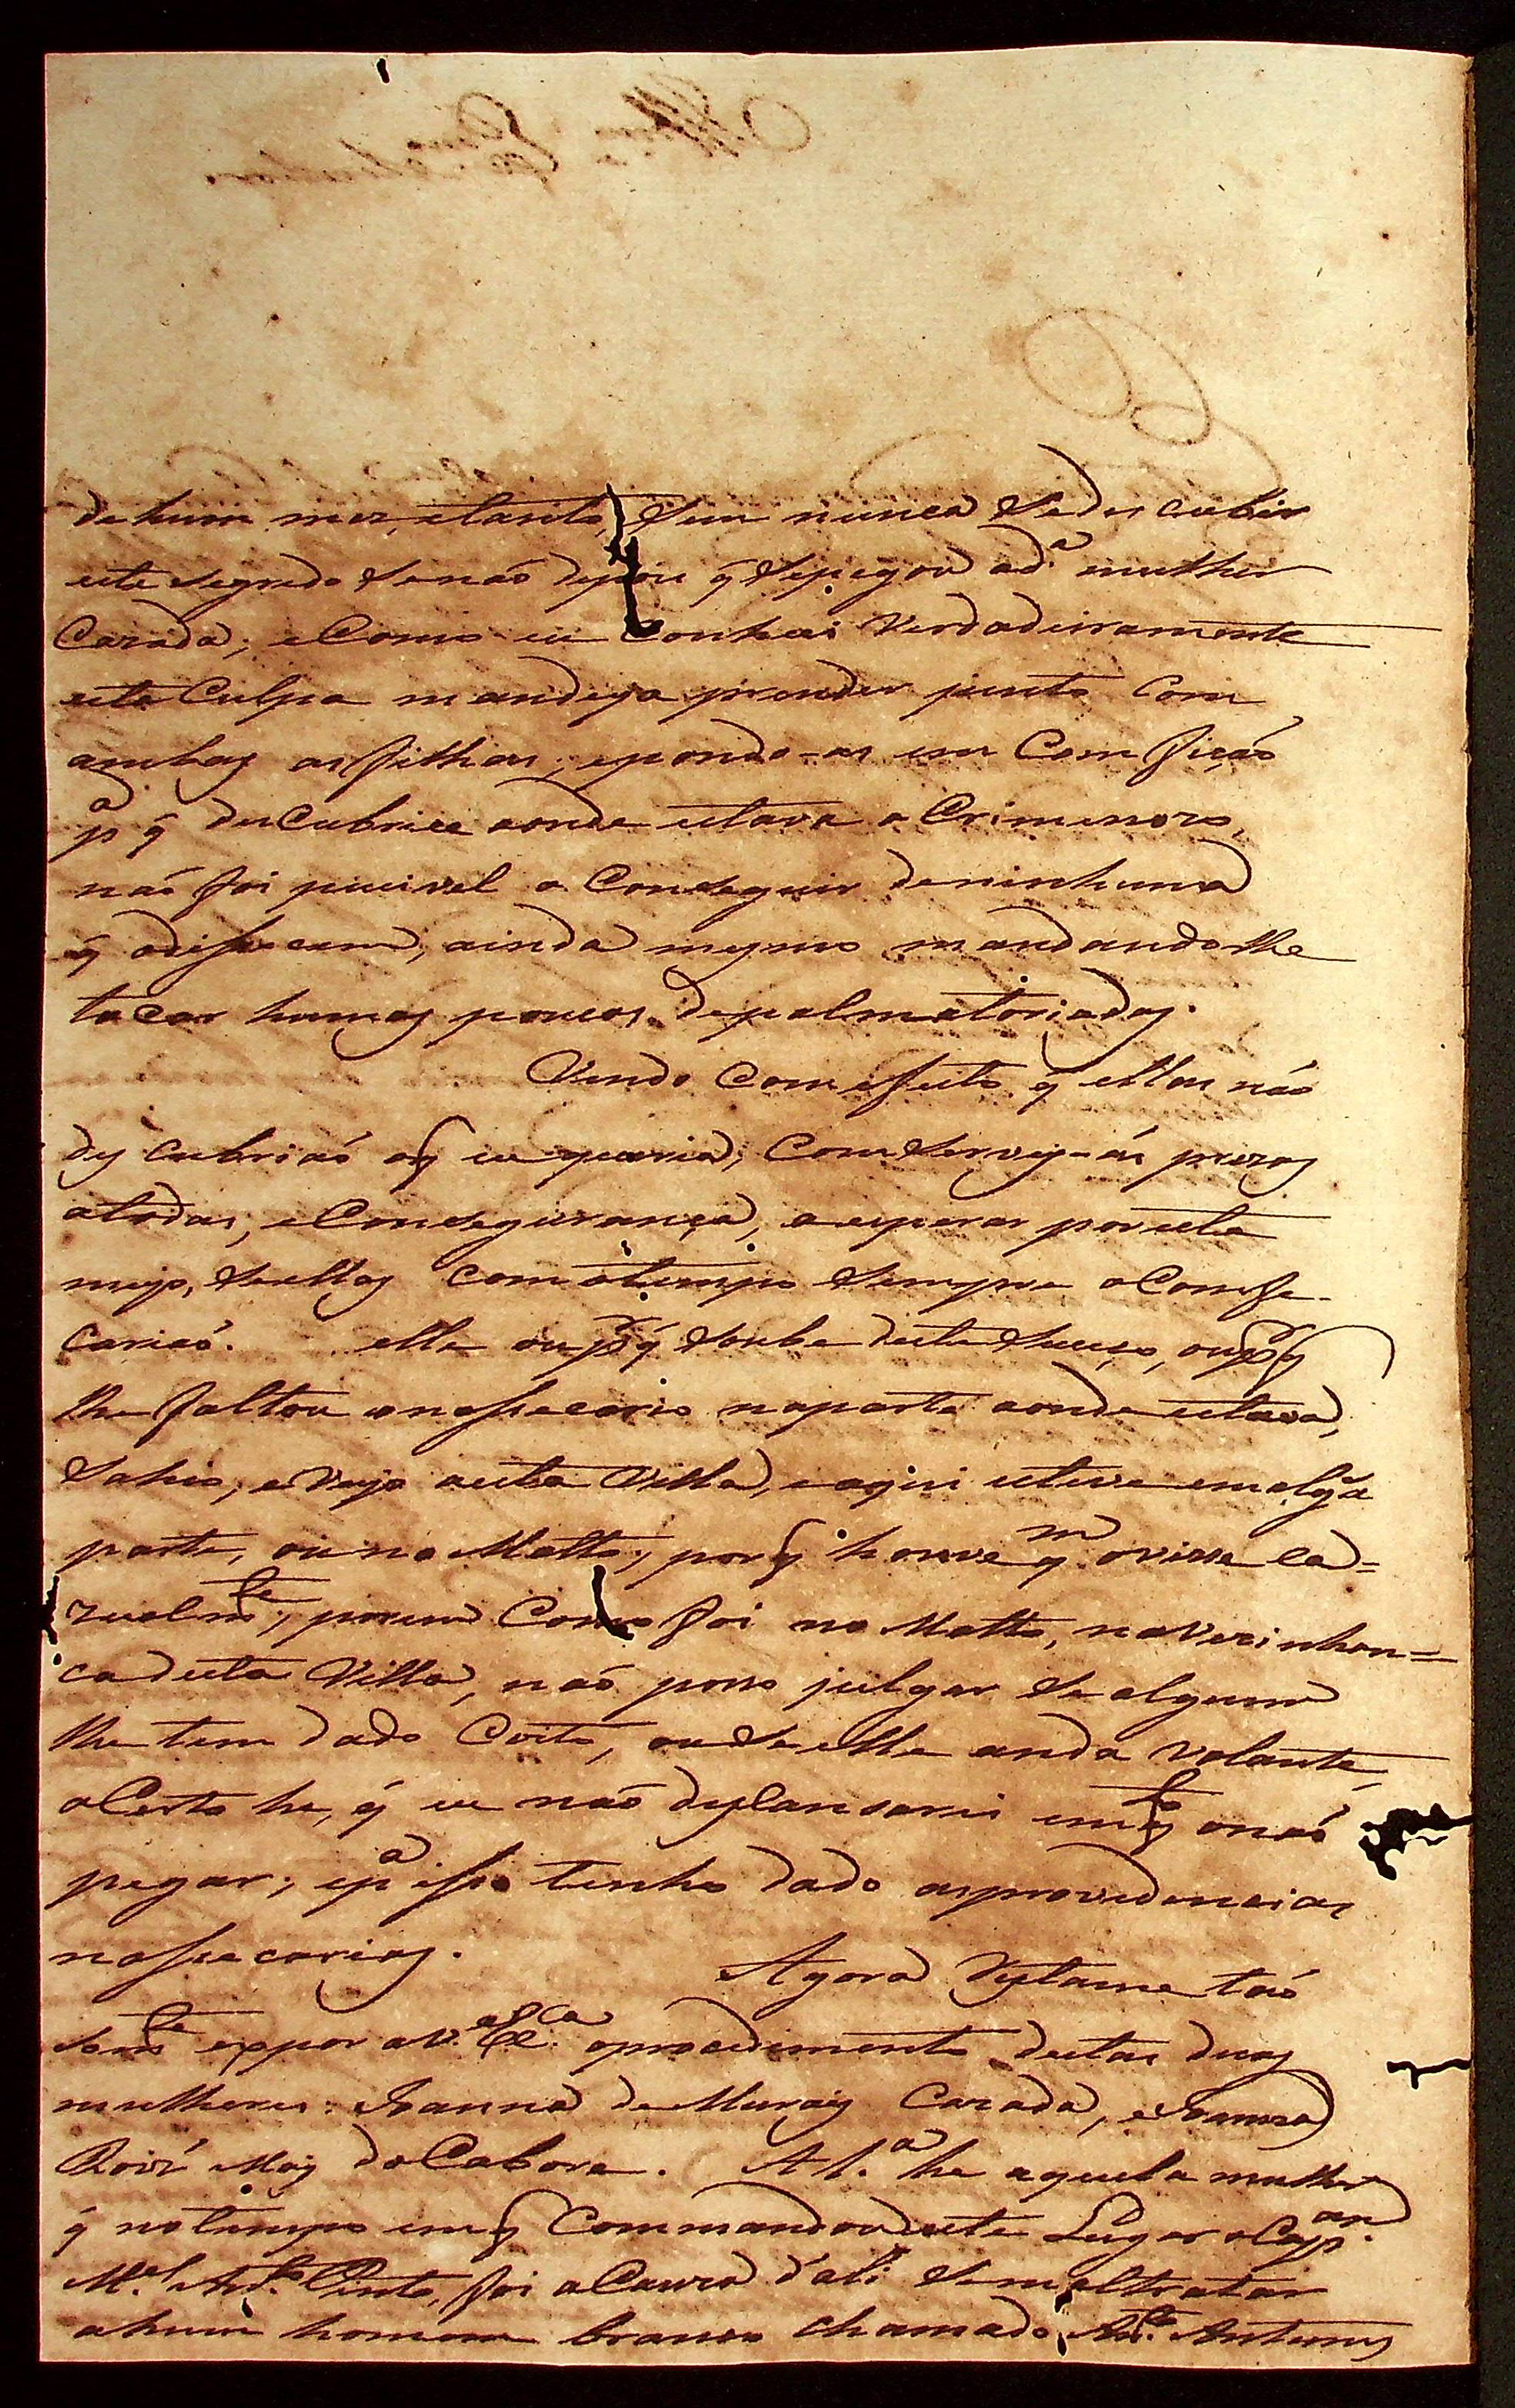 de hum mez, e tanto, sem nunca se des cubir
este segredo senaó depois q̃ se pegou a d.ª mulher
Cazada; e Como eu Conheci Verdadeiramente
esta Culpa mandey a prender junto Com
ambas as filhas; e pondo-as em Comfiçaó
p.ª q̃ descubrisse aonde estava o Criminozo,
naó foi pucivel o Conseguir de ninhuma
q̃ o dissecem, ainda mesmo mandando lhe
tocar humas poucas de palmatoriadas.
Vendo Com effeito q̃ ellas naó
dyscubriaó o q̃ eu queria, Comservey-ás prezas
a todas, e Com segurança, a esperar por este
meyo, se ellas com o tempo sempre o Comfe-
cariaó. elle ou p.r q̃ soube deste suceço, ou p.r q̃
lhe faltou o nossecario na parte aonde estava,
Sahio, e Veyo a esta Villa, e aqui esteve em alg̃a
parte, ou no Matto, por q̃ houve q.m o visse ca=
zualm.te, porem Como foi no Matto, na Vezinhan=
ca desta Villa, naó posso julgar se algum
lhe tem dado Coito, ou se elle anda Volante,
o Certo he, q̃ eu naó dyscansarei emq.to o naó
pegar; e p.ª isso tenho dado as providencias
nossecarias.
Agora Rystame taó
som.te expor a V. Ex.ca o procedimento destas duas
mulheres: Joanna de Murays Cazada, e Joanna
Roiz̃ May do Cabora. A 1.ª he aquela mulher
q̃ no tempo em q̃ Commandou este Lugar o Cap.am
M.el Ant.o Pinto, foi a Cauza d'ali se maltratar
a hum homem branco chamado Ant.o Antunes